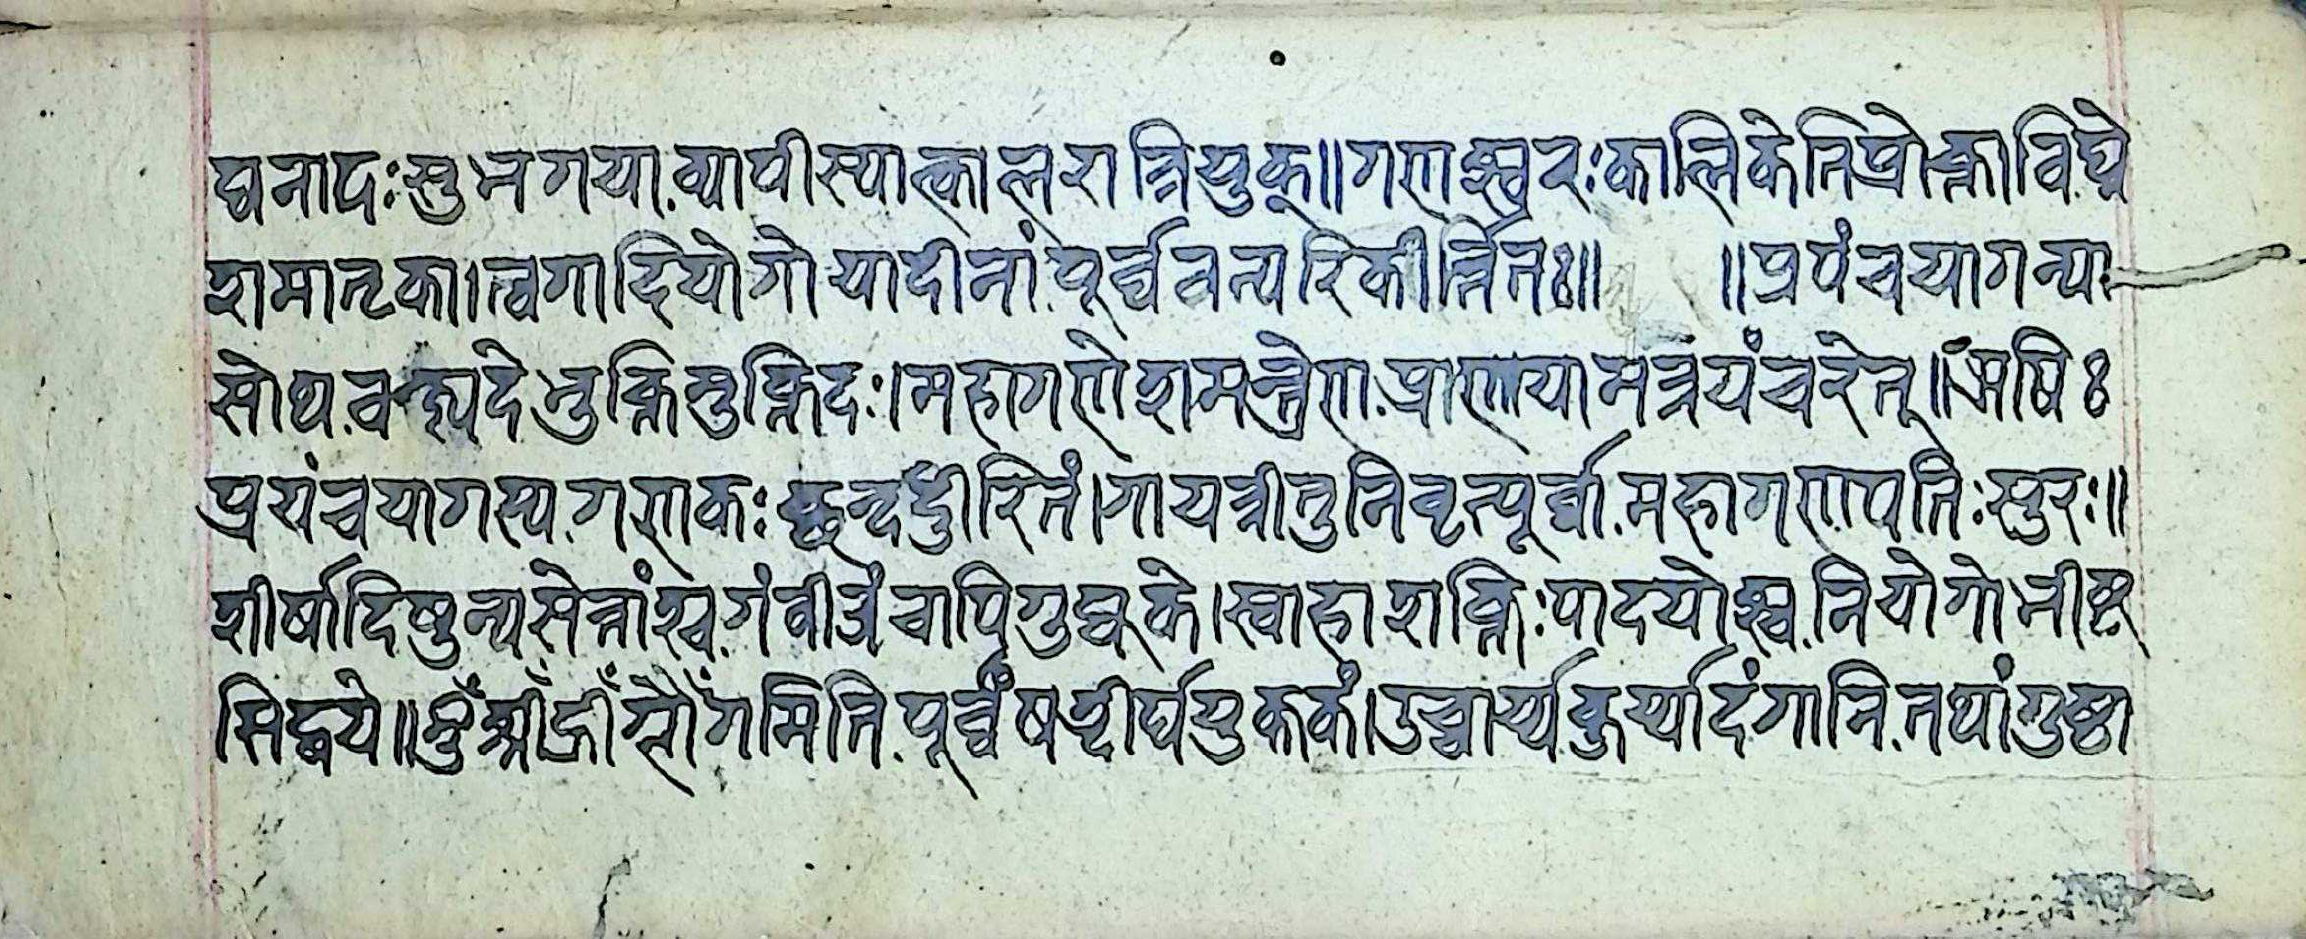 घनादःसुभगया.व्यापीस्यात्कालरात्रियुक्॥गणेश्वरःकालिकेतिप्रोक्ताविघ्ने
शमातृका।त्वगादियोगोयादीनां.पूर्व्ववत्परिकीर्त्तितः॥ ॥प्रपंचयागन्या
सोथ.वक्ष्यदेभुक्तिमुक्तिदः।महागणेशमन्त्रेण.प्राणायामत्रयंचरेत्॥ऋषिः
प्रपंचयागस्य.गणकःछन्दईरितं।गायत्रीतुनिवृत्पूर्व्वा.महागणपतिःसुरः॥
शीर्षादिषुन्यसेत्तांश्च.गंबीजंचापिगुह्यके।स्वाहाशक्तिःपादयोश्च.नियोगोभीष्ट
सिद्धये॥ॐश्रीँह्रीँग्लौँगमिति.पूर्व्वंषड्दीर्घयुक्तकं।उच्चार्य्यकुर्य्यादंगानि.तथांगुष्ठा